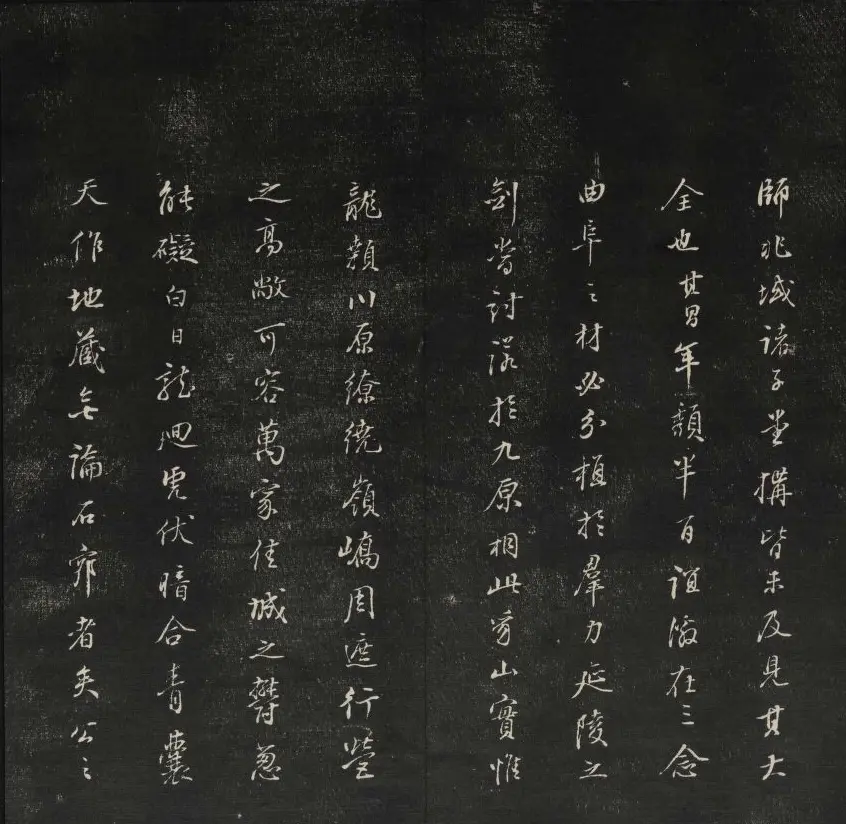 師兆域諸子堂搆皆未及見其大
全也其昌年頹半百誼激在三念
曲阜之材必分植於羣力延陵之
劍嘗討於九原相此山實惟
龍川原繚繞嶺嶠周遮行營
之高敞可容萬家佳城之鬱葱
能礙白日龍迴虎伏暗合青囊
天作地藏無論石者矣公之